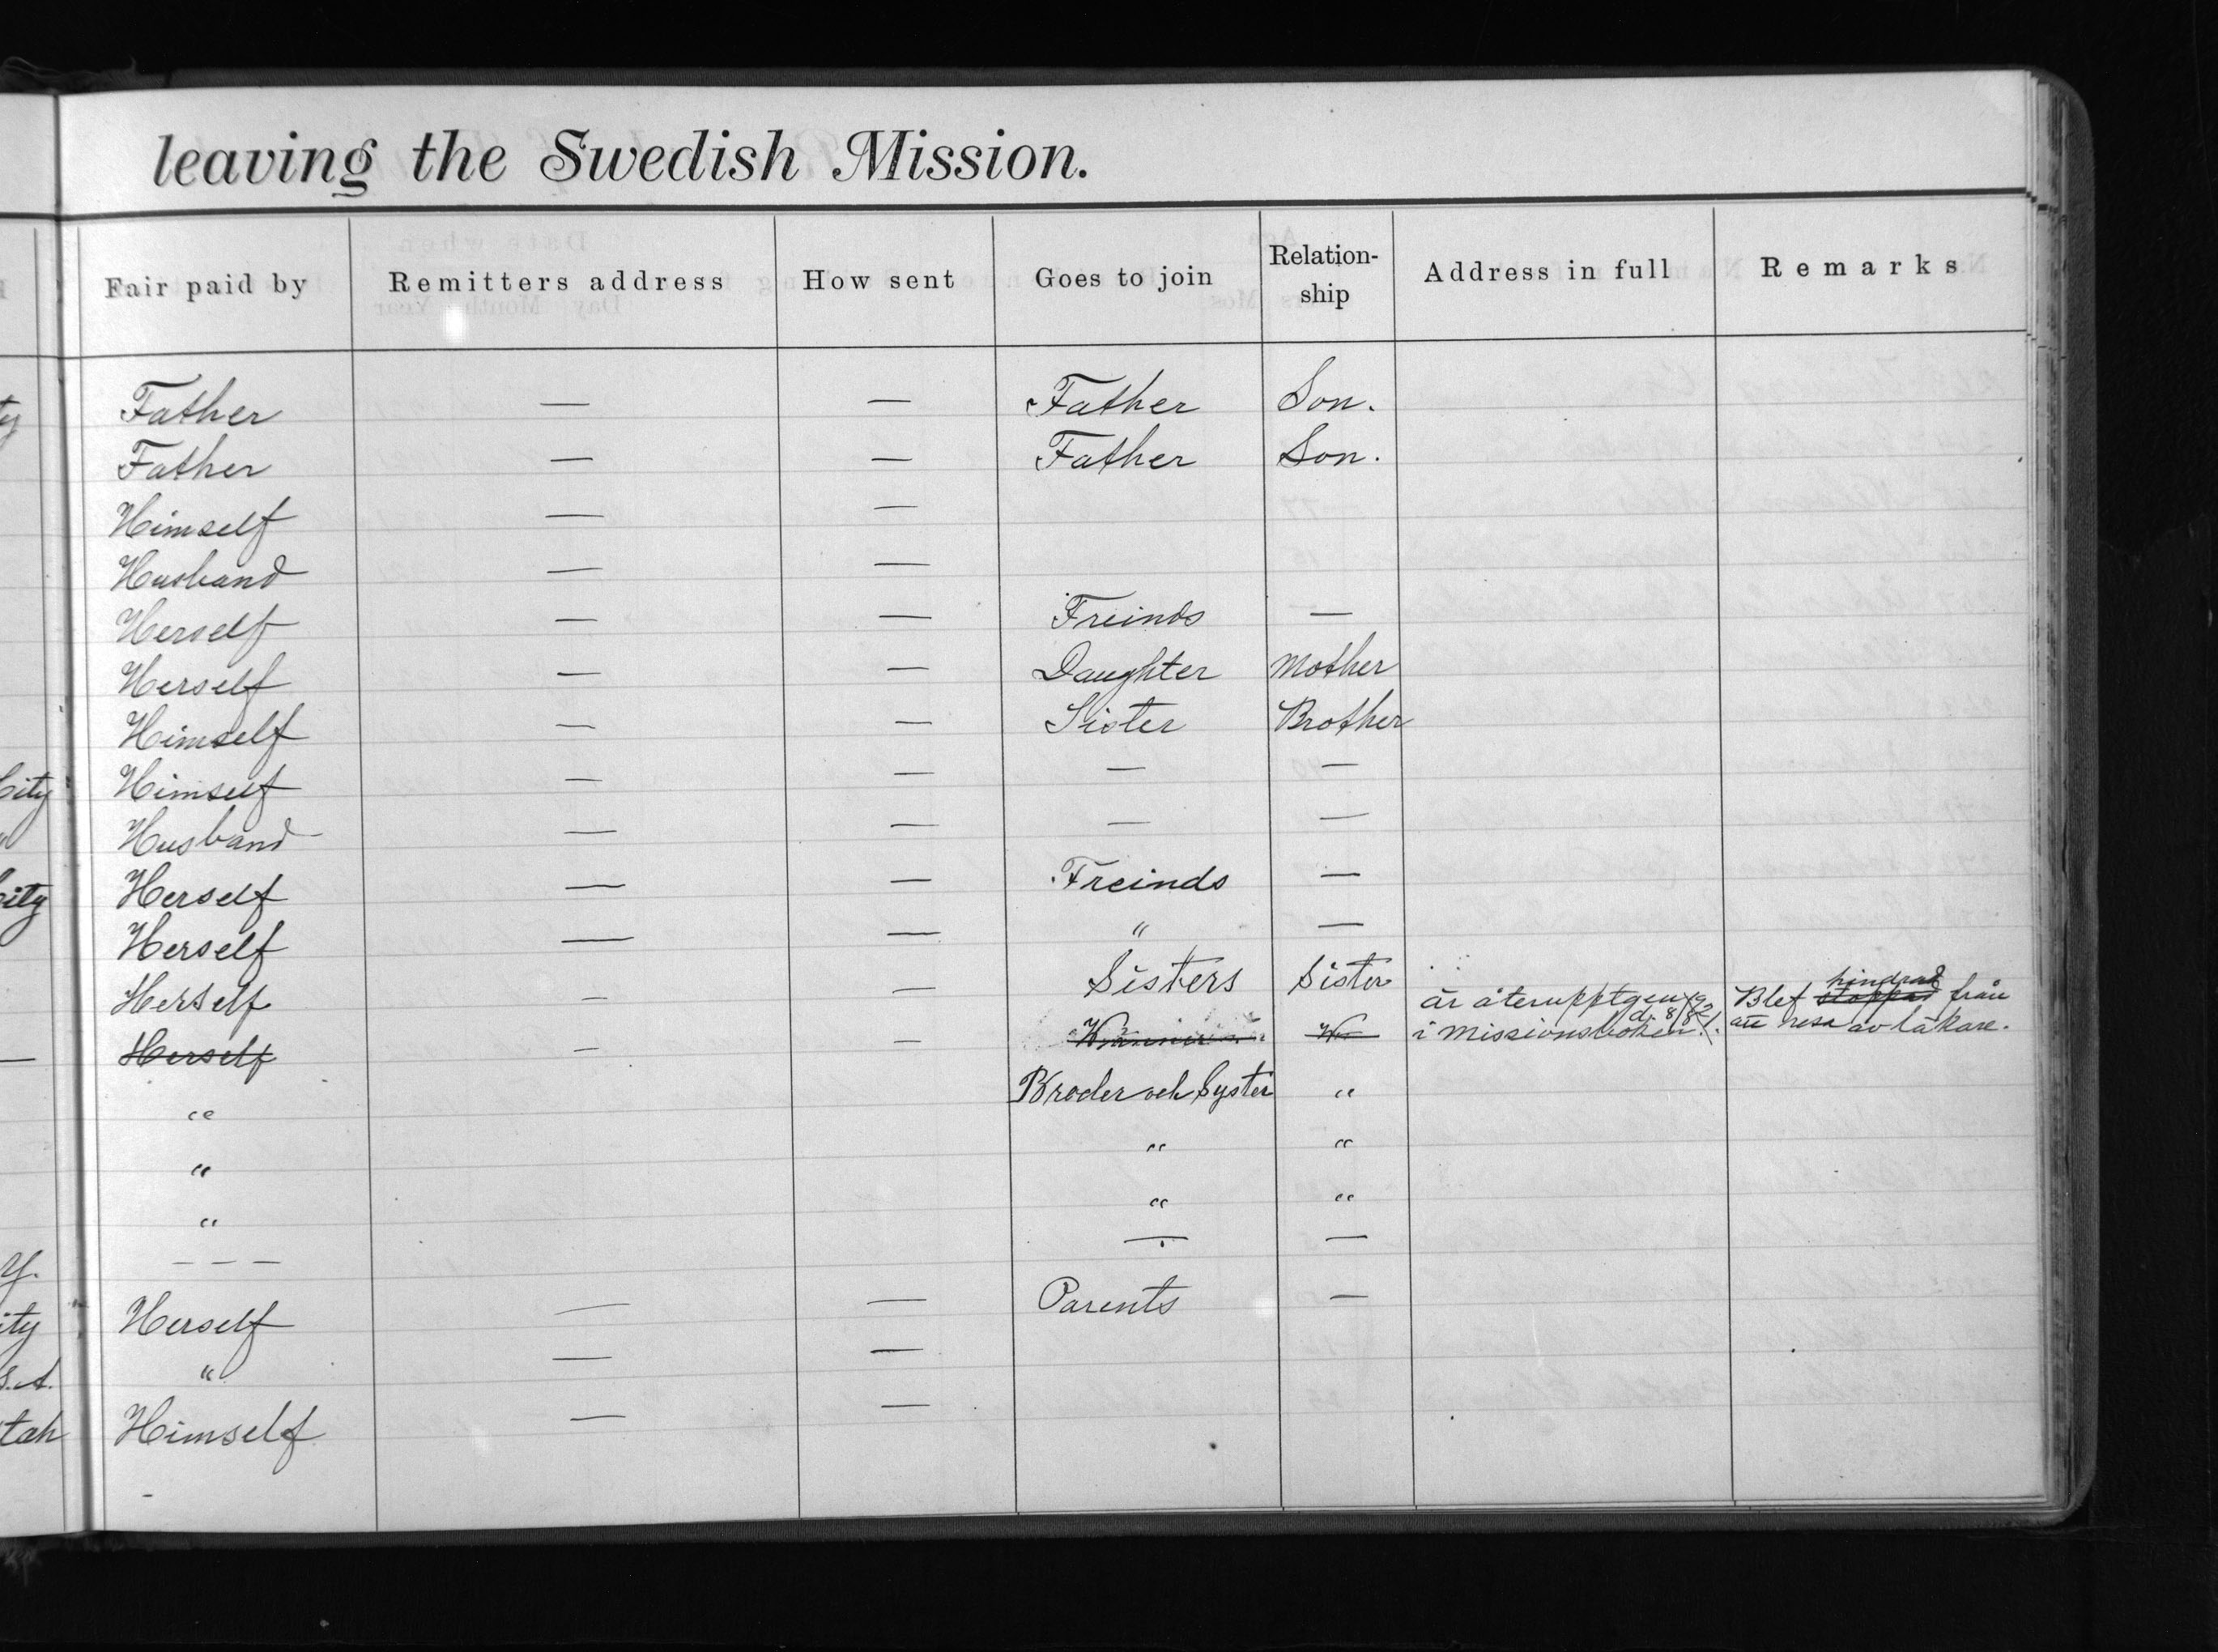 leaving the Swedish Mission.
Fair paid by Remitters address How sent Goes to join Relation-ship Address in full Remarks
ty Father — — Father Son.
Father — — Father Son.
Himself — —
Husband — —
Herself — — Freinds —
Herself — — Daughter Mother
Himself — — Sister Brother
City Himself — — — —
" Husband — — — —
City Herself — — Freinds —
Herself — — " —
Herself — — Sisters Sister
är återupptgen hindrad
d. 8/8 92 Blef stoppad från
— Herself — — i Missionsboken!. att resa av läkare.
" Broder och Syster "
" " "
" " "
y. – – – — —
ity Herself — — Parents —
S.A. " — —
tah Himself — —